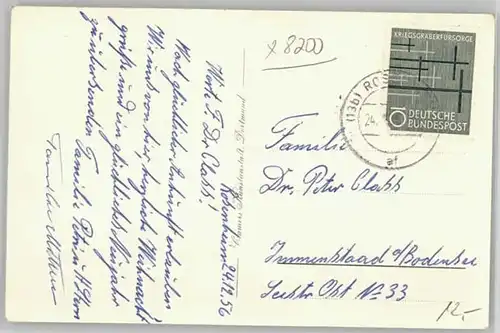 x 8200
KRIEGSGRÄBERFÜRSORGE
10 DEUTSCHE
BUNDESPOST
(13b) ROS
24.
af
Rosenheim 24.12.56
Wert. F. Dr. Class!
Nach glücklicher Ankunft erlauben
Wir uns von hier, herzliche Weihnacht
grüße und ein glückliches Neujahr
zu übersenden. Familie Petri u.
Familie
Familie
Dr. Peter Class
Immenstaad a/Bodensee
Seestr. Ost No 33
12.-